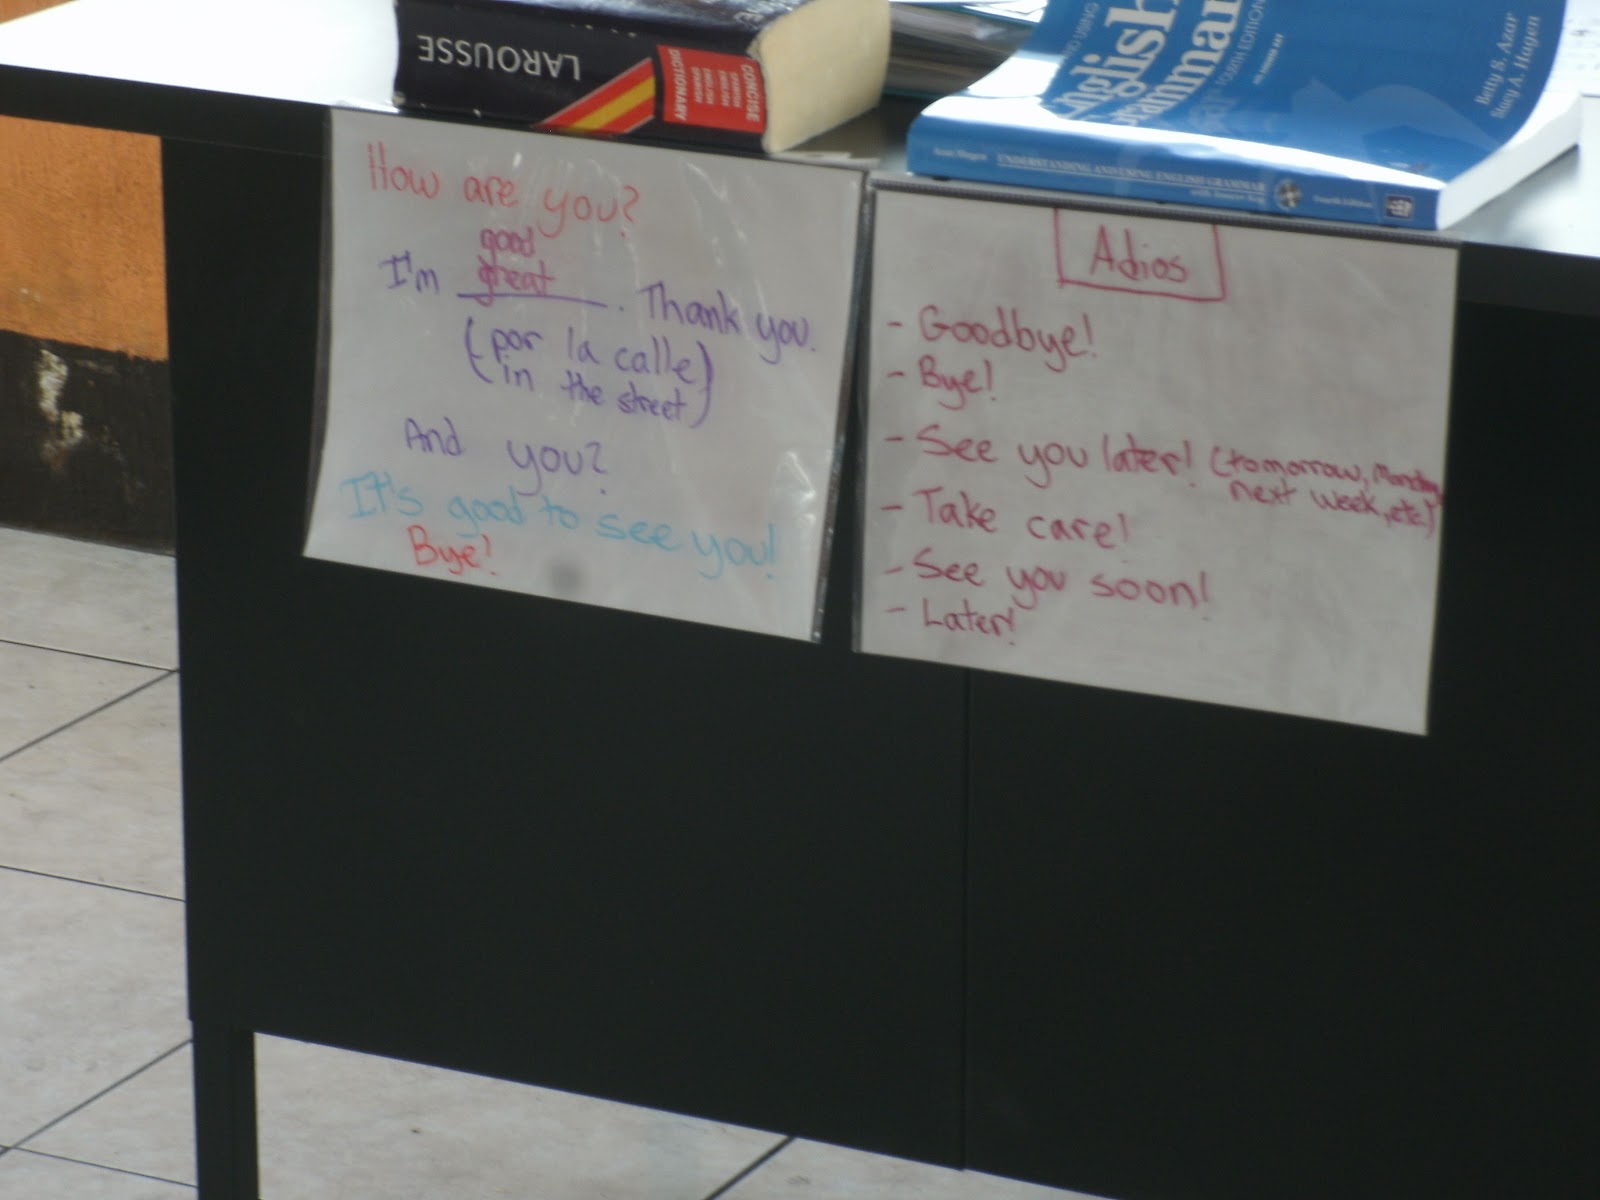 LAROUSSE
CONCISE
DICTIONARY
SPANISH
ENGLISH
ENGLISH
SPANISH
English
Grammar
FOURTH EDITION
Betty S. Azar
Stacy A. Hagen
Azar/Hagen UNDERSTANDING AND USING ENGLISH GRAMMAR
with Answer Key
Fourth Edition
How are you?
good
great
I'm ______. Thank you.
(por la calle)
(in the street)
And you?
It's good to see you!
Bye!
Adios
- Goodbye!
- Bye!
- See you later! (tomorrow, Monday,
next week, etc.)
- Take care!
- See you soon!
- Later!